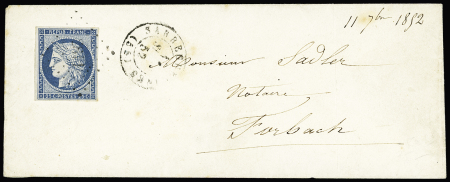 11 7bre 1852
REPUB. FRANC.
25 C. POSTES 25 C.
Monsieur Sadler
Notaire
Forbach